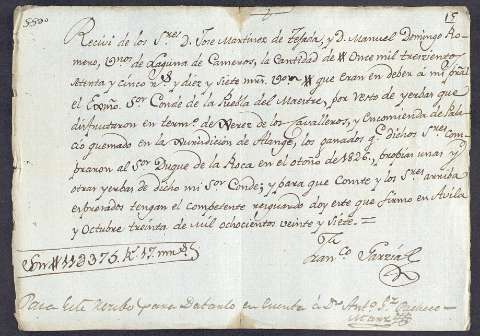 550 15
Recivi de los S.res D. Jose Martinez de Tejada, y D. Manuel Domingo Ro-
mero, vnos de Laguna de Cameros, la Cantidad de Once mil trescientos
setenta y cinco r.s y diez y siete mrs. von que eran en deber a mi pral.
el Exmo. S.or Conde de la Puebla del Maestre, por resto de yerbas que
disfrutaron en termo. de Xerez de los Cavalleros, y Encomienda de Pala-
cio quemado en la Jurisdicion de Alange, los ganados q.e dichos S.res com-
praron al S.or Duque de la Roca en el otoño de 1826, probias unas y
otras yerbas de dicho mi S.or Conde; y para que Conste y los S.res arriba
espresados tengan el competente resguardo doy este que firmo en Avila
y Octubre treinta de mil ochocientos veinte y siete.=
Fran.co Garzia
Son 11@375 r.s 17 mrs.
Pasa este recibo para Datarlo en cuenta á Dn. Anto. Pacheco